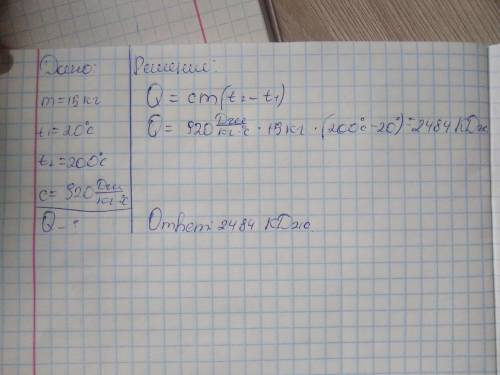 Дано:
m=15кг
t₁=20°c
t₂=200°c
c=920 Дж/кг·°c
Q-?
Решение:
Q = cm(t₂-t₁)
Q = 920 Дж/кг·°c · 15кг · (200°c-20°)=2484 КДж
Ответ: 2484 КДж.